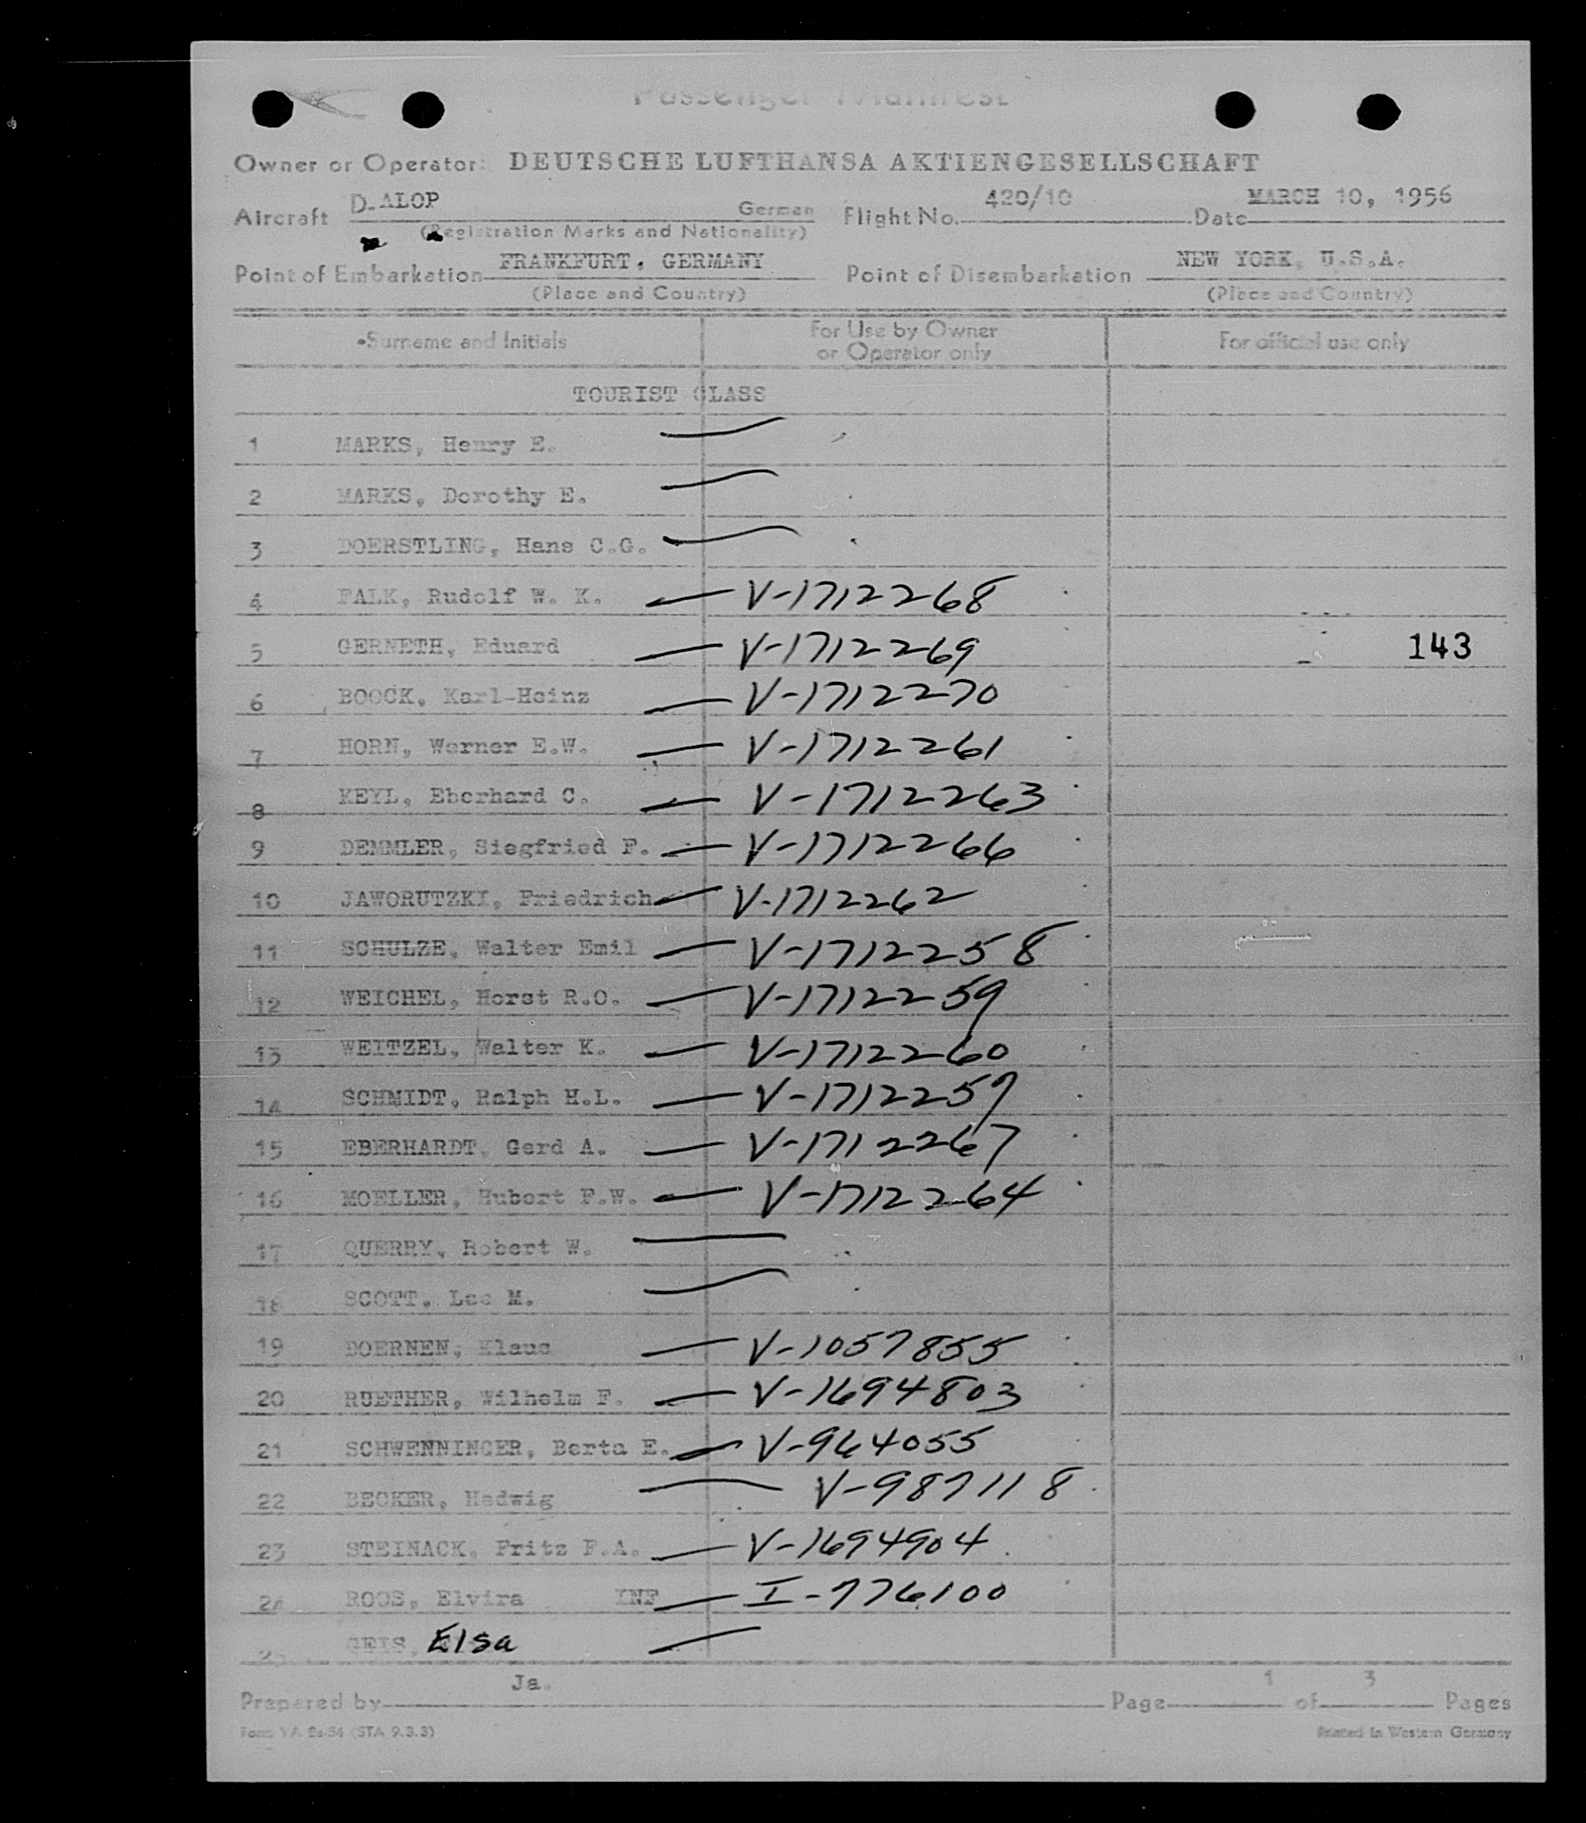 Passenger Manifest
Owner or Operator: DEUTSCHE LUFTHANSA AKTIENGESELLSCHAFT
Aircraft D-ALOP German Flight No. 420/10 Date MARCH 10, 1956
(Registration Marks and Nationality)
Point of Embarkation FRANKFURT, GERMANY Point of Disembarkation NEW YORK, U.S.A.
(Place and Country) (Place and Country)
•Surname and Initials For Use by Owner or Operator only For official use only
TOURIST CLASS
1 MARKS, Henry E.
2 MARKS, Dorothy E.
3 DOERSTLING, Hans C.G.
4 FALK, Rudolf W. K. V-1712268
5 GERNETH, Eduard V-1712269 143
6 BOOCK, Karl-Heinz V-1712270
7 HORN, Werner E.W. V-1712261
8 KEYL, Eberhard C. V-1712263
9 DEMMLER, Siegfried F. V-1712266
10 JAWORUTZKI, Friedrich V-1712262
11 SCHULZE, Walter Emil V-1712258
12 WEICHEL, Horst R.O. V-1712259
13 WEITZEL, Walter K. V-1712260
14 SCHMIDT, Ralph H.L. V-1712257
15 EBERHARDT, Gerd A. V-1712267
16 MOELLER, Hubert F.W. V-1712264
17 QUERRY, Robert W.
18 SCOTT, Lee M.
19 DOERNEN, Klaus V-1057855
20 RUETHER, Wilhelm F. V-1694803
21 SCHWENNINGER, Berta E. V-964055
22 BECKER, Hedwig V-987118
23 STEINACK, Fritz F.A. V-1694904
24 ROOS, Elvira INF I-776100
25 GEIS, Elsa
Prepared by Ja. Page 1 of 3 Pages
(STA 9.3.3) Printed in Western Germany